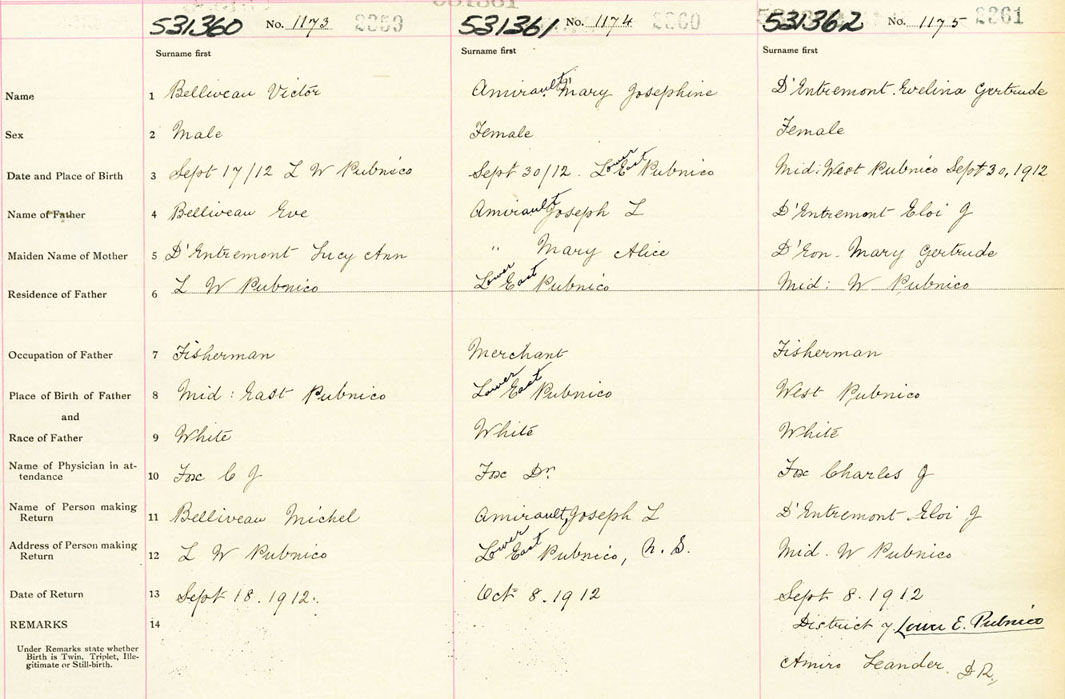 531361
531360 No. 1173 2359 531361 No. 1174 2360 531362 No. 1175 2361
Surname first Surname first Surname first
Name 1 Belliveau Victor Amirault Mary Josephine D'Entremont Evelina Gertrude
Sex 2 Male Female Female
Date and Place of Birth 3 Sept 17/12 L W Pubnico Sept 30/12. Lower East Pubnico Mid: West Pubnico Sept 30, 1912
Name of Father 4 Belliveau Eve Amirault Joseph L D'Entremont Eloi J
Maiden Name of Mother 5 D'Entremont Lucy Ann " Mary Alice D'Eon. Mary Gertrude
Residence of Father 6 L W Pubnico Lower East Pubnico Mid: W Pubnico
Occupation of Father 7 Fisherman Merchant Fisherman
Place of Birth of Father 8 Mid: East Pubnico Lower East Pubnico West Pubnico
and
Race of Father 9 White White White
Name of Physician in at-
tendance 10 Fox C J Fox Dr. Fox Charles J
Name of Person making
Return 11 Belliveau Michel Amirault, Joseph L D'Entremont Eloi J
Address of Person making
Return 12 L W Pubnico Lower East Pubnico, N. S. Mid. W Pubnico
Date of Return 13 Sept 18. 1912. Oct 8. 1912 Sept 8. 1912
REMARKS 14 District of Lower E. Pubnico
Under Remarks state whether
Birth is Twin, Triplet, Ille-
gitimate or Still-birth. Amiro Leander. D.R.